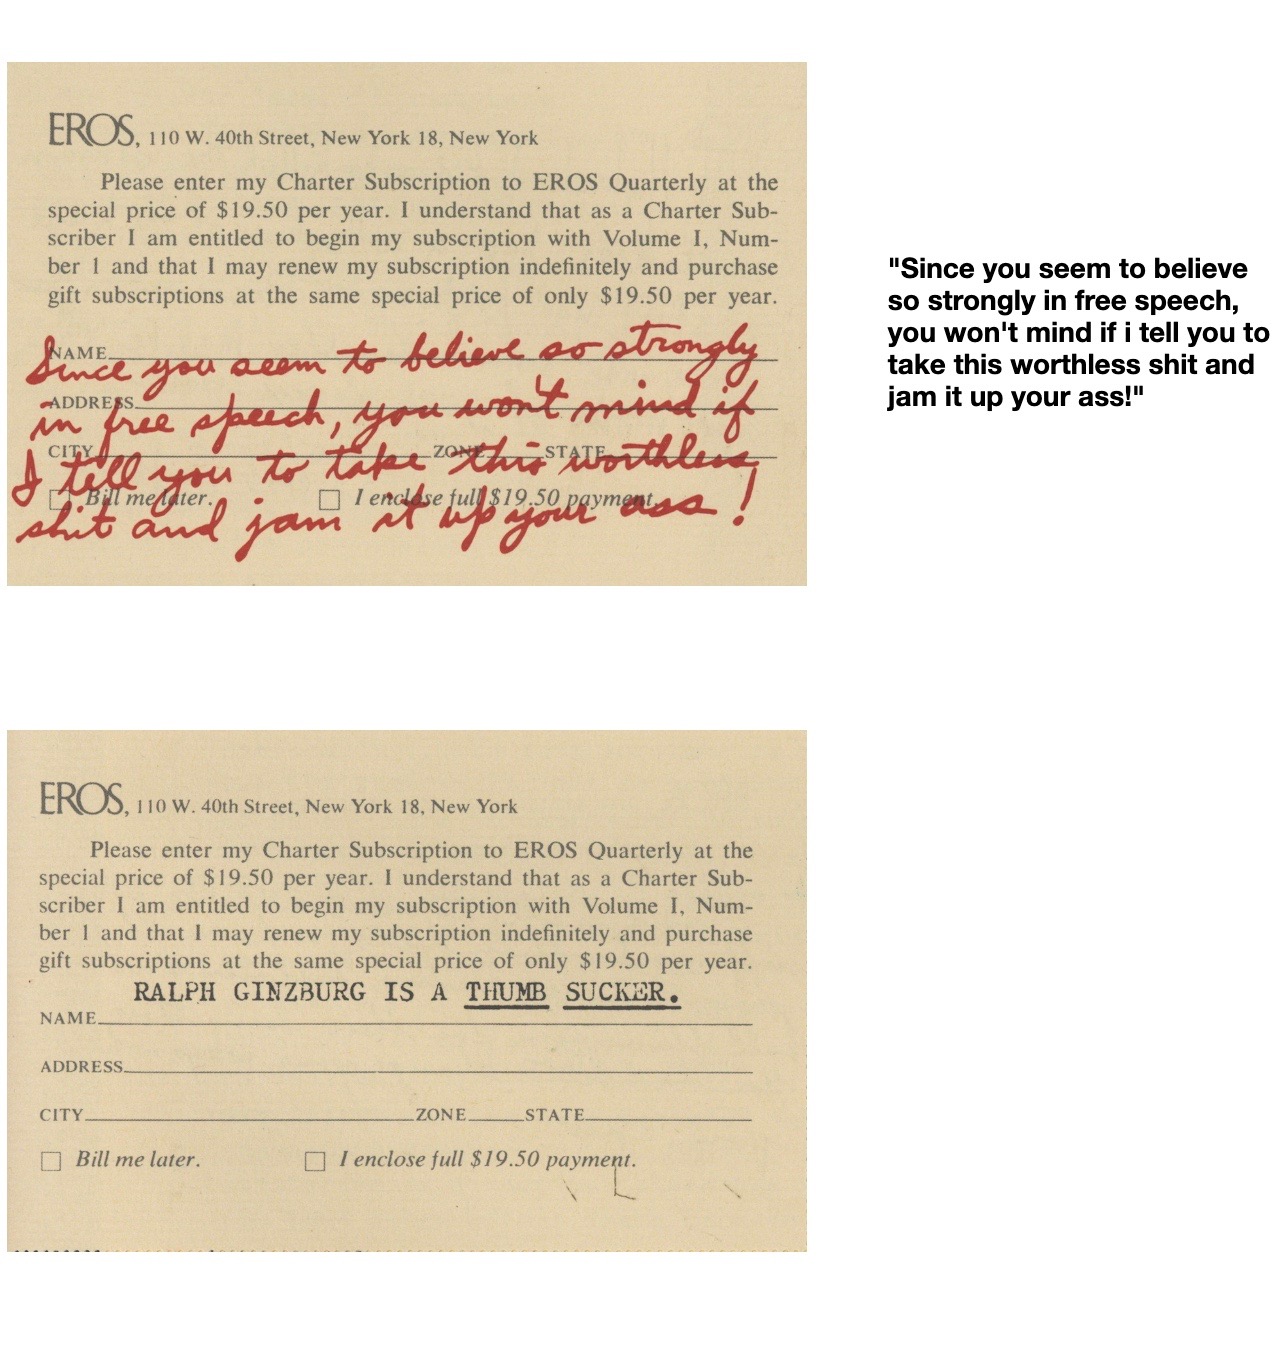 EROS, 110 W. 40th Street, New York 18, New York
Please enter my Charter Subscription to EROS Quarterly at the
special price of $19.50 per year. I understand that as a Charter Sub-
scriber I am entitled to begin my subscription with Volume I, Num-
ber 1 and that I may renew my subscription indefinitely and purchase
gift subscriptions at the same special price of only $19.50 per year.
NAME
Since you seem to believe so strongly
ADDRESS
in free speech, you won't mind if
CITY ZONE STATE
I tell you to take this worthless
Bill me later. I enclose full $19.50 payment.
shit and jam it up your ass!
"Since you seem to believe
so strongly in free speech,
you won't mind if i tell you to
take this worthless shit and
jam it up your ass!"
EROS, 110 W. 40th Street, New York 18, New York
Please enter my Charter Subscription to EROS Quarterly at the
special price of $19.50 per year. I understand that as a Charter Sub-
scriber I am entitled to begin my subscription with Volume I, Num-
ber 1 and that I may renew my subscription indefinitely and purchase
gift subscriptions at the same special price of only $19.50 per year.
RALPH GINZBURG IS A THUMB SUCKER.
NAME
ADDRESS
CITY ZONE STATE
Bill me later. I enclose full $19.50 payment.